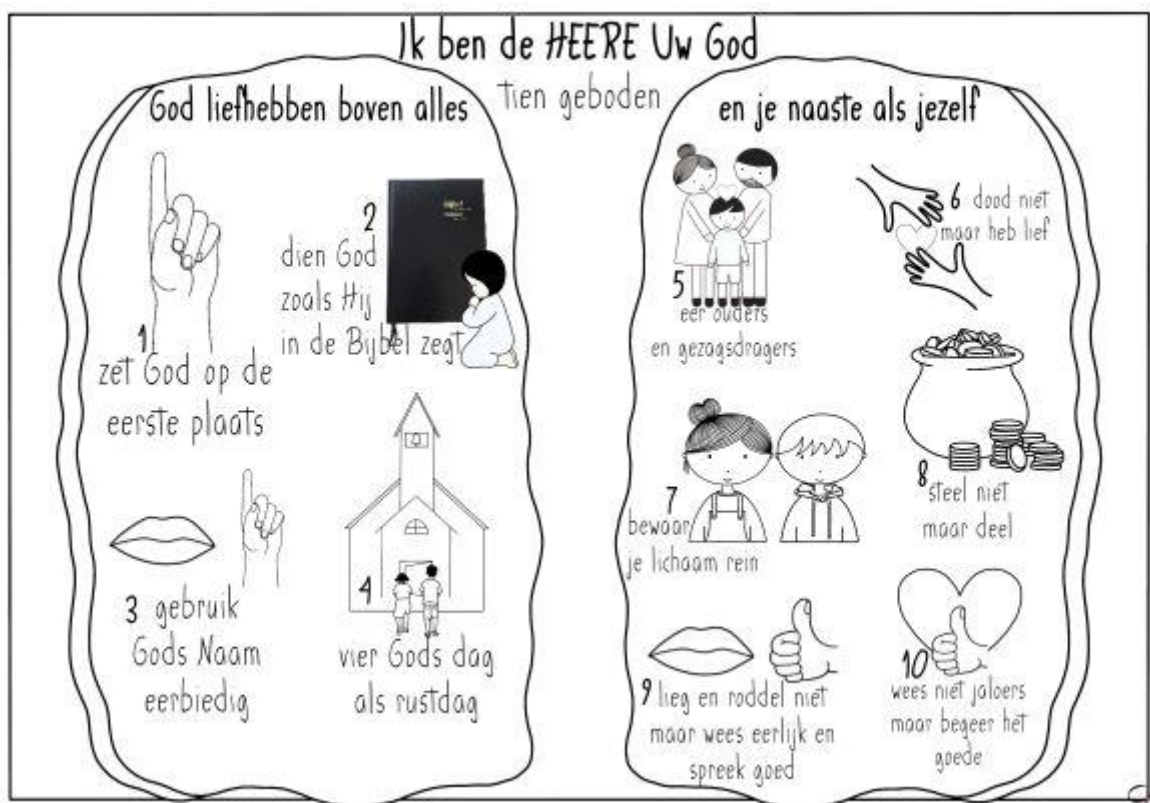 Ik ben de HEERE Uw God
Tien geboden
God liefhebben boven alles
1
zet God op de
eerste plaats
2
dien God
zoals Hij
in de Bijbel zegt
3 gebruik
Gods Naam
eerbiedig
4
vier Gods dag
als rustdag
en je naaste als jezelf
5
eer ouders
en gezagsdragers
6 dood niet
maar heb lief
7
bewaar
je lichaam rein
8
steel niet
maar deel
9 lieg en roddel niet
maar wees eerlijk en
spreek goed
10
wees niet jaloers
maar begeer het
goede